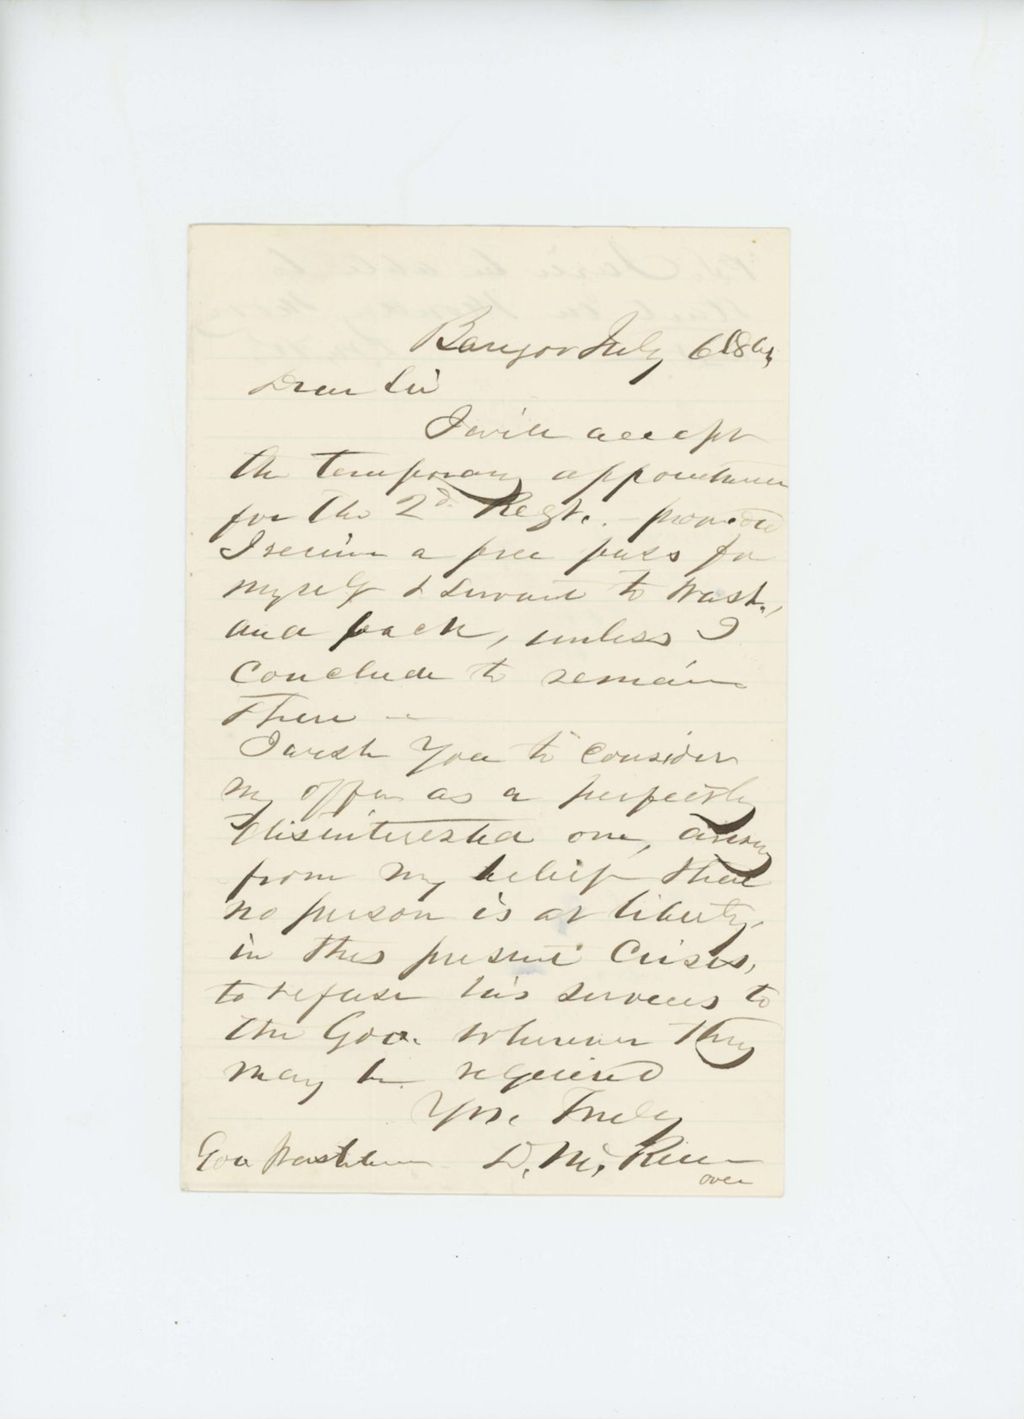 Bangor July 6 1861
Dear Sir
I will accept
the temporary appointment
for the 2d. Regt. - provided
I receive a free pass for
myself & servant to Wash.,
and back, unless I
conclude to remain
There -
I wish you to consider
my offer as a perfectly
disinterested one, arising
from my belief that
no person is at liberty,
in this present Crisis,
to refuse his services to
the Gov. wherever they
may be required
Yrs. Truly
Gov Washburn D. Mc. Ruer
over